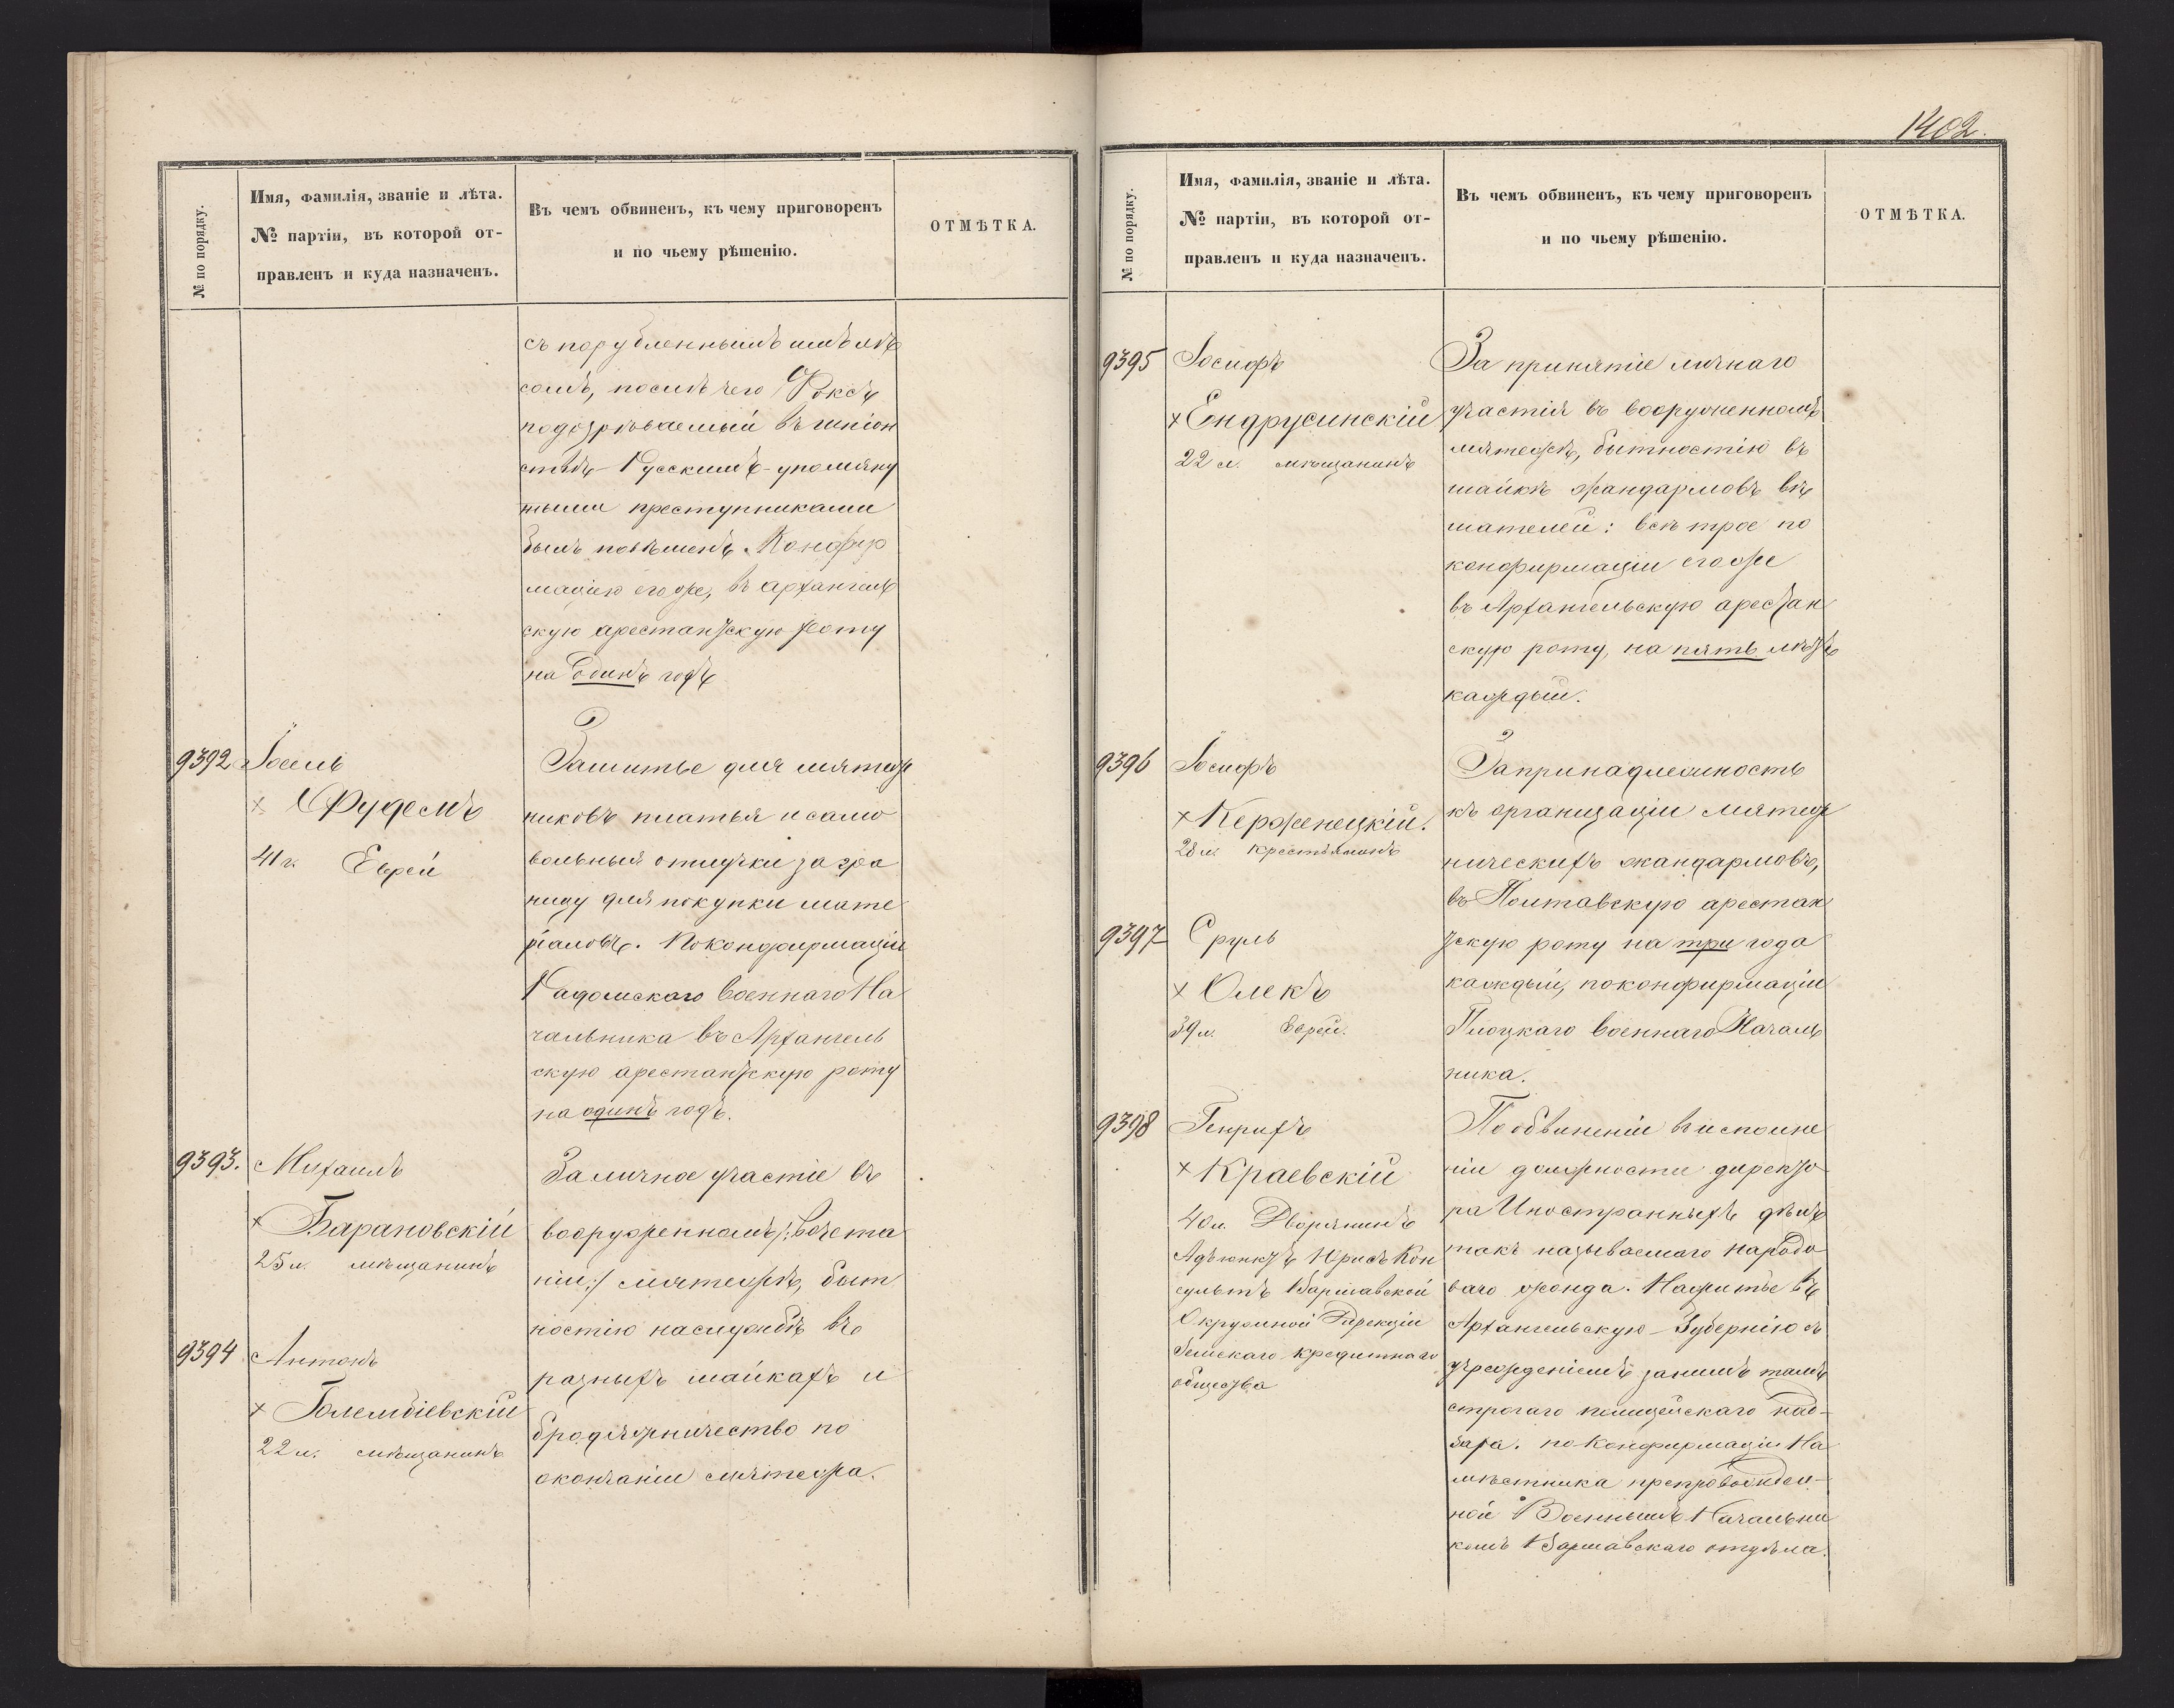 1402.
№ по порядку.
Имя, фамилія, званіе и лѣта.
№ партіи, въ которой от-
правленъ и куда назначенъ.
Въ чемъ обвиненъ, къ чему приговоренъ
и по чьему рѣшенію.
ОТМѢТКА.
съ порубленнымъ
сомъ, послѣ чего Фоксъ
подозрѣваемый въ шпіон
ствѣ Русскимъ упомяну
тыми преступниками
былъ повѣшенъ. Конфир
маціею его же, въ Архангель
скую арестантскую роту
на одинъ годъ
9392
Іосель
× Фудемъ
41 г. Еврей
За шитье для мятеж
никовъ платья и само
вольныя отлучки за гра
ницу для покупки мате
ріаловъ. По конфирмаціи
Радомскаго военнаго На
чальника въ Архангель
скую арестантскую роту
на одинъ годъ.
9393.
Михаилъ
× Барановскій
25 л. мѣщанинъ
9394
Антонъ
× Голембіевскій
22 л. мѣщанинъ
За личное участіе въ
вооруженномъ /: возста
ніи :/ мятежѣ, быт
ностію на службѣ въ
разныхъ шайкахъ и
бродяжничество по
окончаніи мятежа.
№ по порядку.
Имя, фамилія, званіе и лѣта.
№ партіи, въ которой от-
правленъ и куда назначенъ.
Въ чемъ обвиненъ, къ чему приговоренъ
и по чьему рѣшенію.
ОТМѢТКА.
9395
Іосифъ
× Ендрусинскій
22 л. мѣщанинъ
За принятіе личнаго
участія въ вооруженномъ
мятежѣ, бытностію въ
шайкѣ жандармовъ вѣ
шателей: всѣ трое по
конфирмаціи его же
въ Архангельскую арестан
скую роту, на пять лѣтъ
каждый.
9396
Іосифъ
× Керженецкій.
28 л. крестьянинъ
9397
Сруль
× Олекъ
39 л. Еврей.
За принадлежность
къ организаціи мятеж
ническихъ жандармовъ,
въ Полтавскую арестан
тскую роту на три года
каждый, по конфирмаціи
Плоцкаго военнаго Началь
ника.
9398
Генрихъ
× Краевскій
40 л. Дворянинъ
Адъюнктъ Юрисъ Кон
сультъ Варшавской
Окружной Дирекціи
Земскаго кредитнаго
общества
По обвиненію въ исполне
ніи должности директо
ра Иностранныхъ дѣлъ
такъ называемаго народо
ваго жонда. На житье въ
Архангельскую Губернію съ
учрежденіемъ за нимъ тамъ
строгаго полицейскаго над-
зора. по конфирмаціи На
мѣстника препровожден-
ной Военнымъ Начальни
комъ Варшавскаго отдѣла.